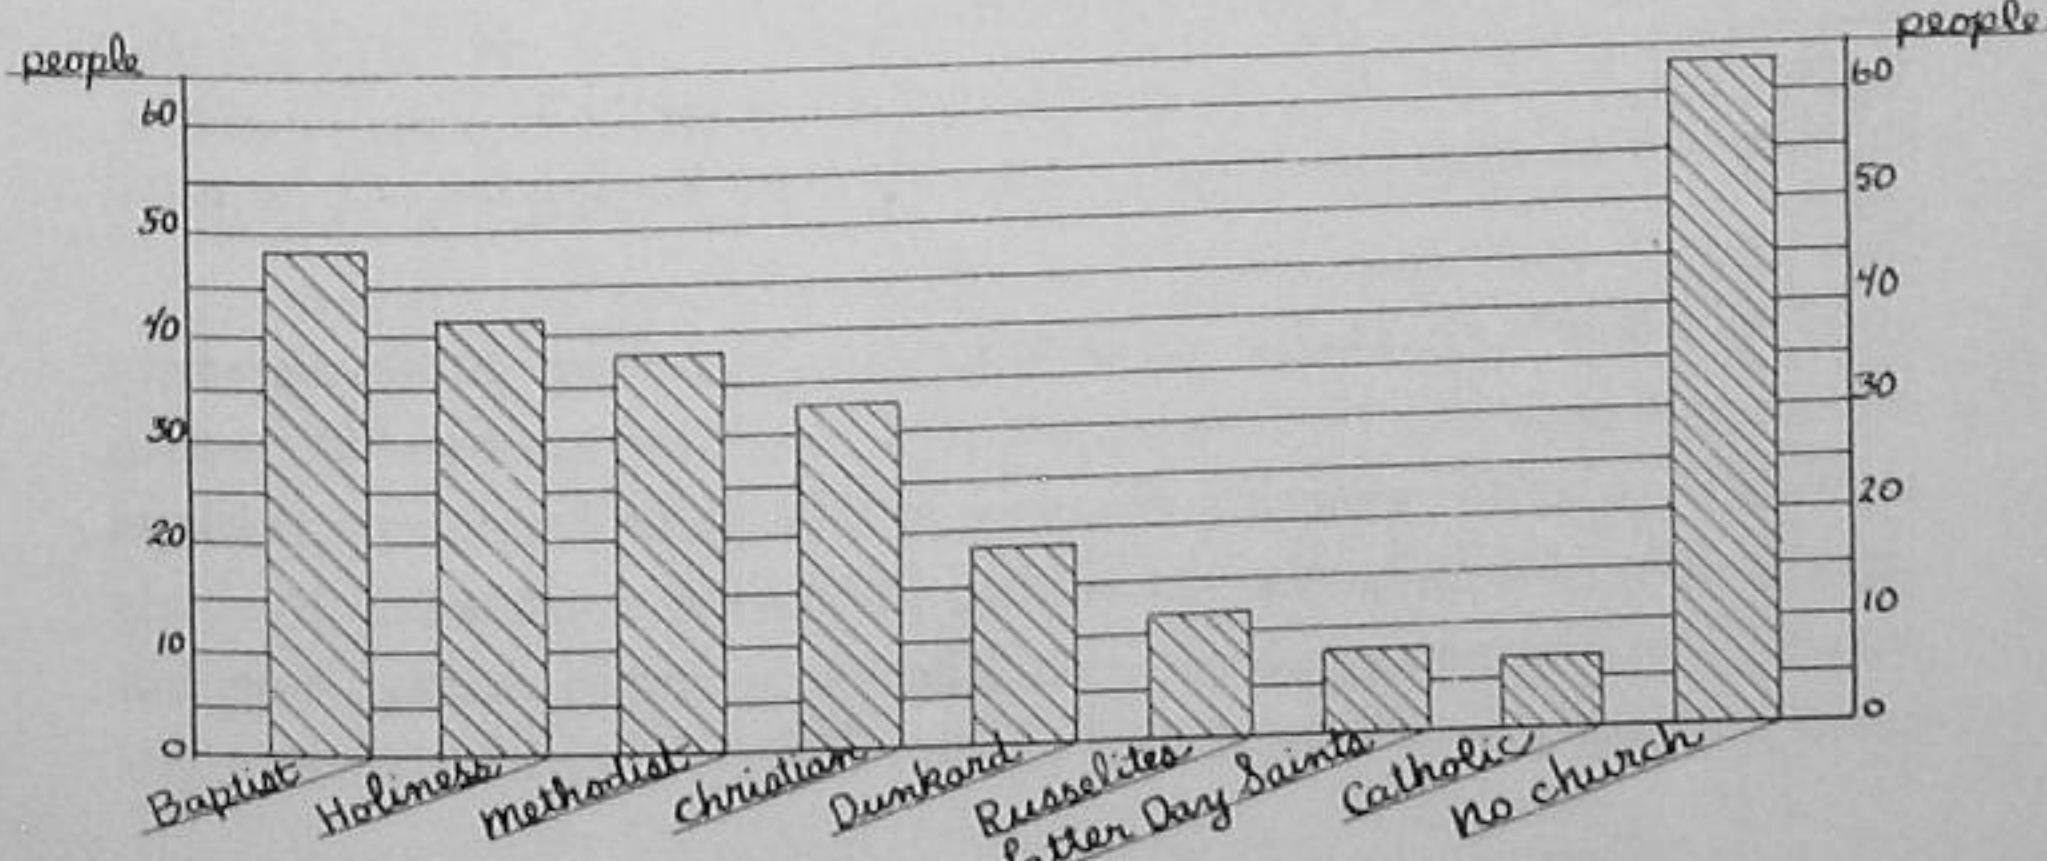 people
people
60
50
40
30
20
10
0
60
50
40
30
20
10
0
Baptist
Holiness
Methodist
Christian
Dunkard
Russelites
Latter Day Saints
Catholic
No church